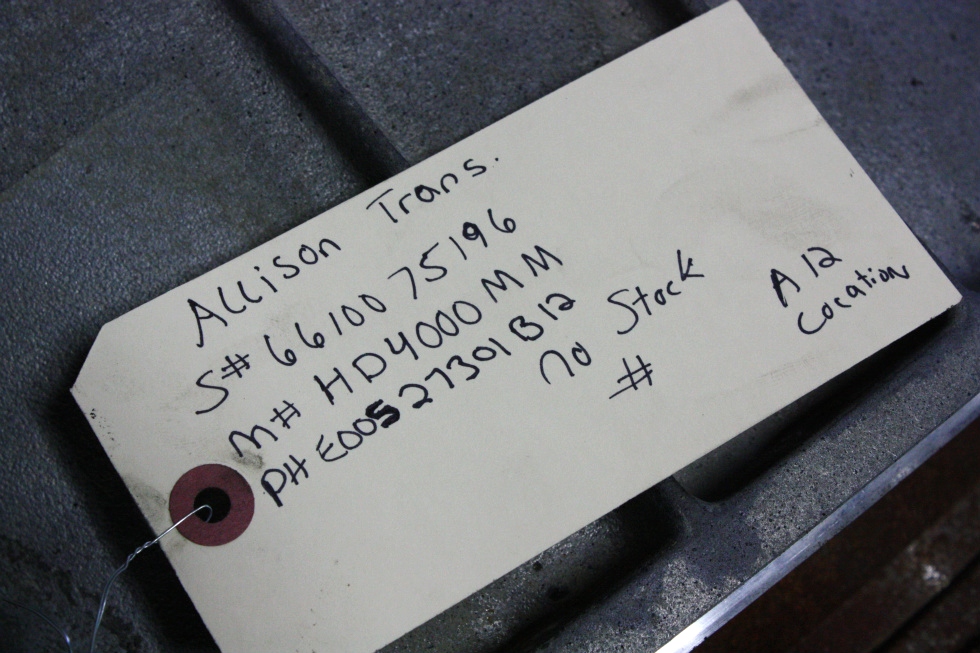 Allison Trans.
S# 66100 75196
M# HD4000 MM
PH E00527301B12
no Stock
#
A 12
Location